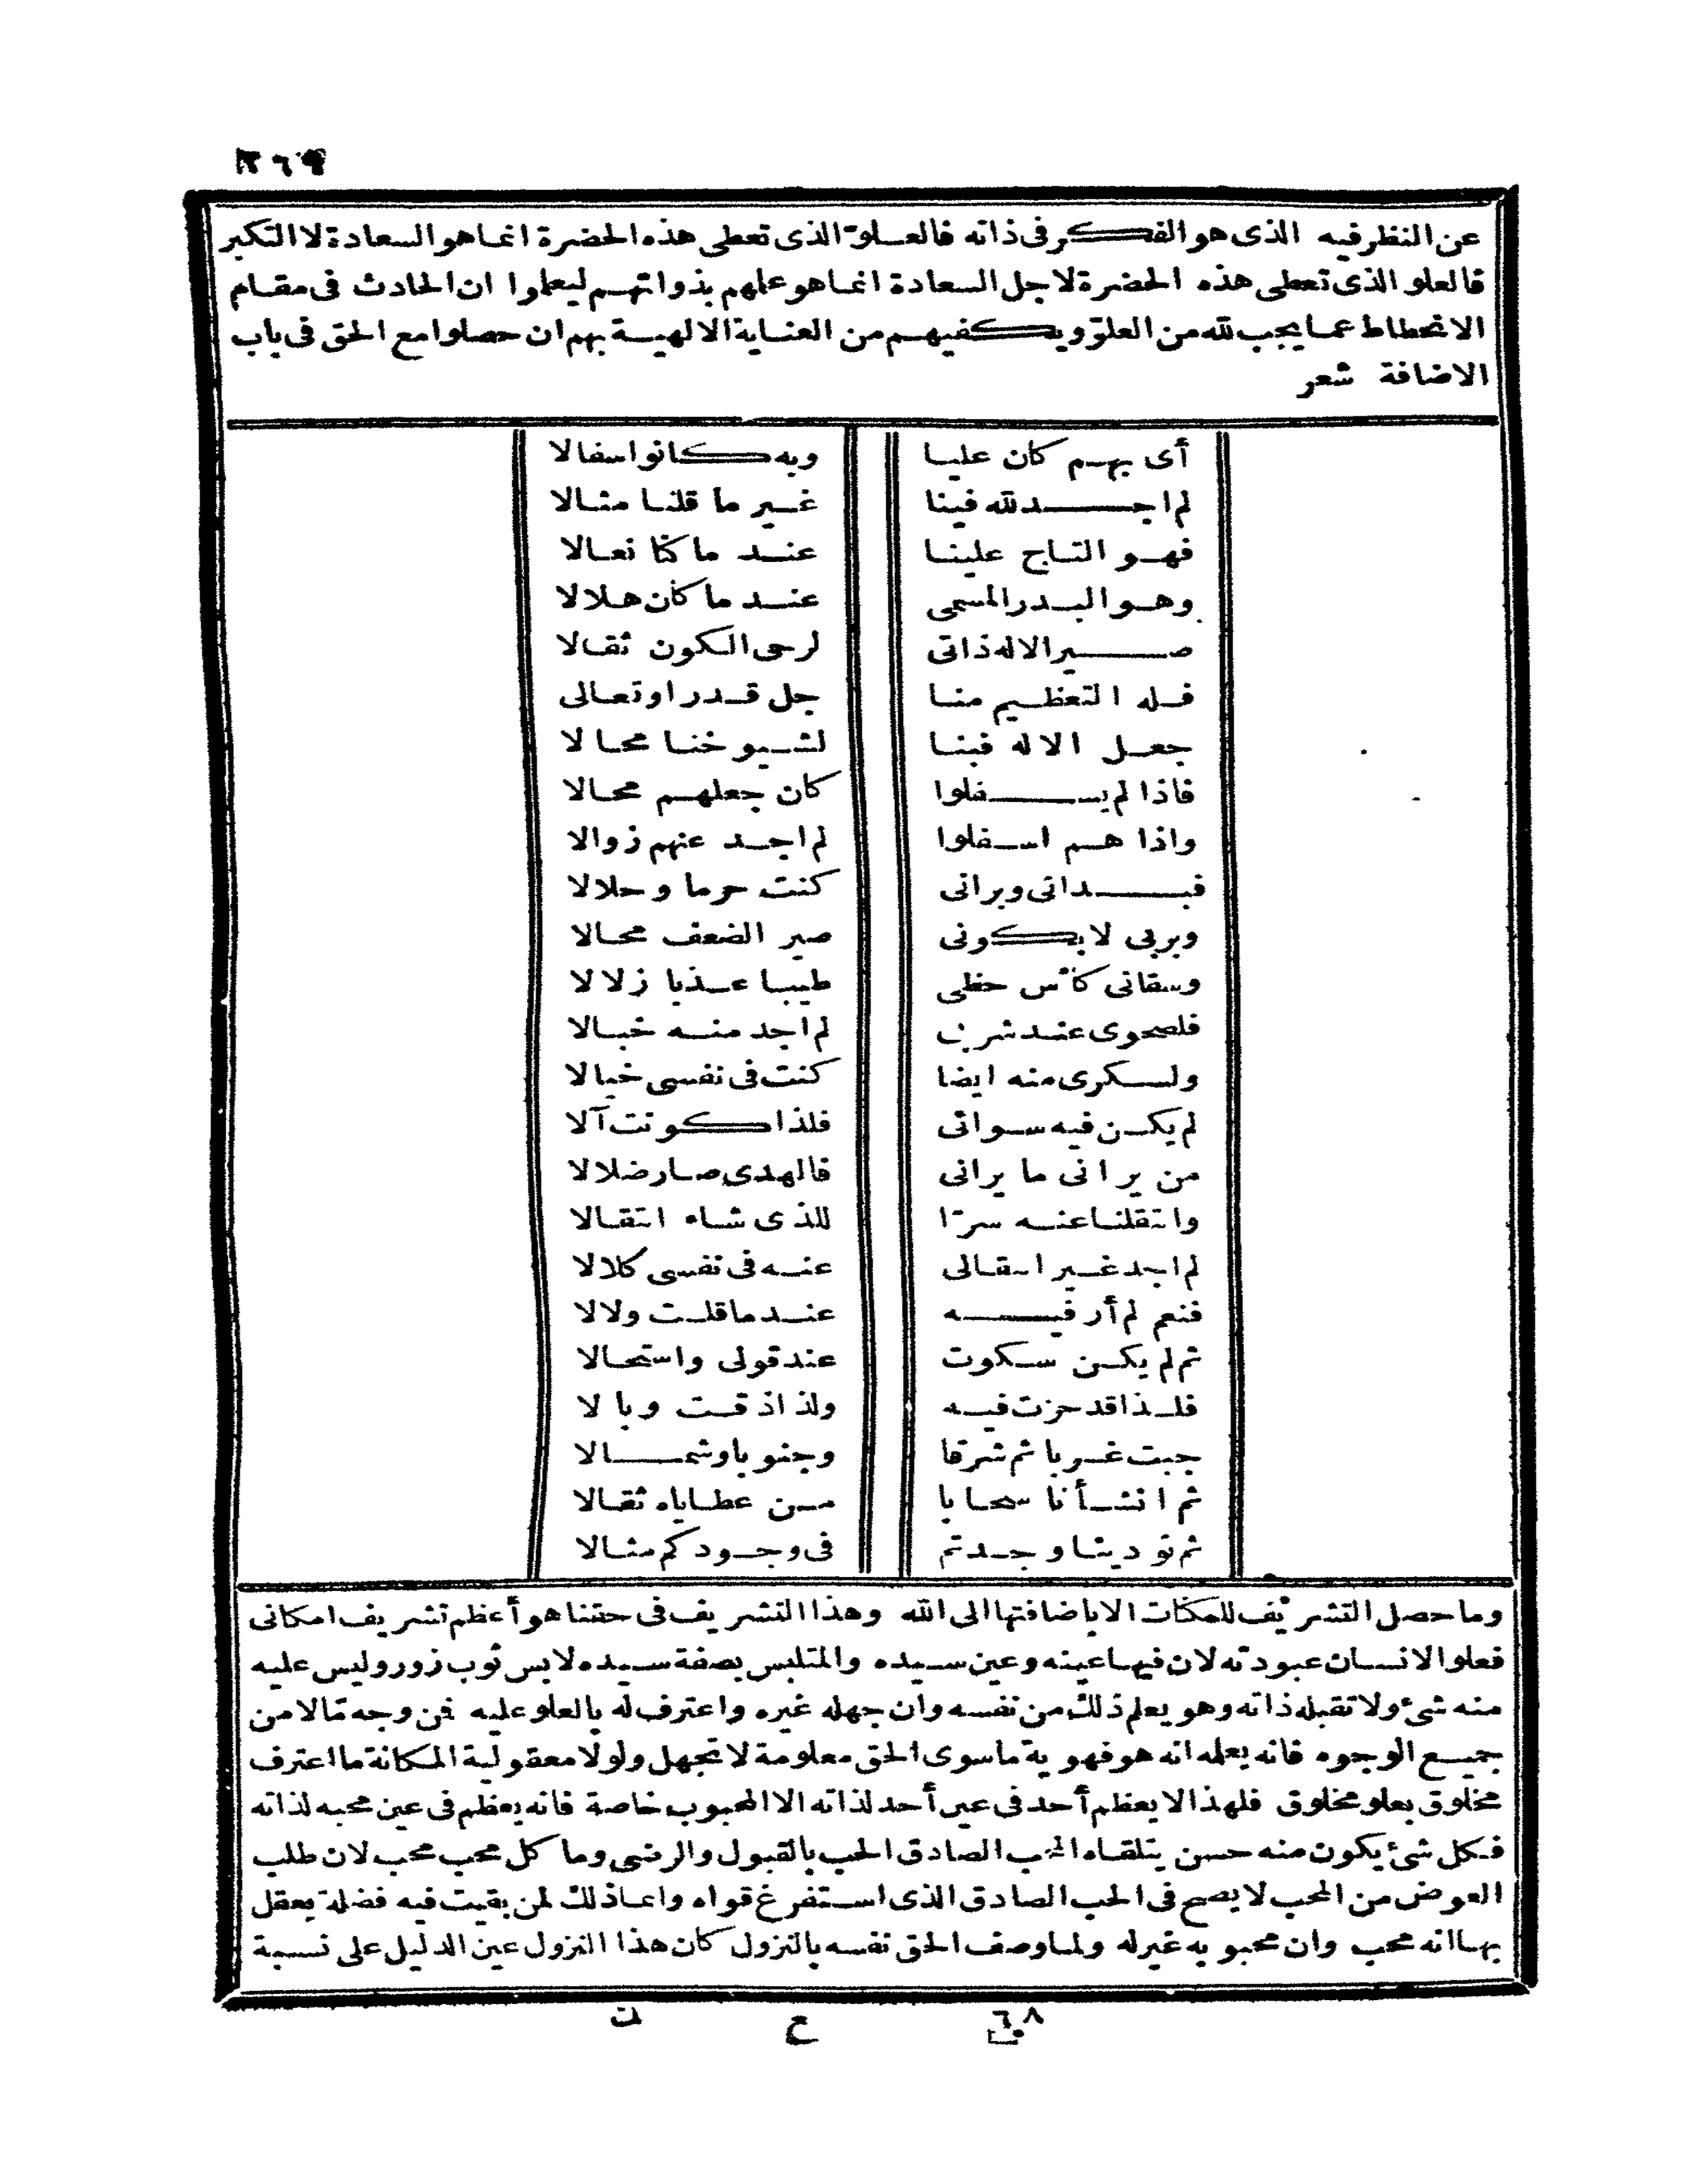 عن النظر فيه الذى هو الفكر فى ذاته فالعلوّ الذى تعطى هذه الحضرة انما هو السعادة لا التكبر
فالعلو الذى تعطى هذه الحضرة لاجل السعادة انما هو علمهم بذواتهم ليعلموا ان الحادث فى مقام
الانحطاط عما يجب لله من العلوّ ويكفيهم من العناية الالهية بهم ان حصلوا مع الحق فى باب
الاضافة شعر
أى بهم كان عليا وبه كانوا سفالا
لم اجد لله فينا غير ما قلنا مثالا
فهو التاج علينا عند ما كنا نعالا
وهو البدر المسمى عند ما كان هلالا
صير الاله ذاتى لرحى الكون ثقالا
فله التعظيم منا جل قدرا وتعالى
جعل الاله فينا لشيوخنا محالا
فاذا لم يسفلوا كان جعلهم محالا
واذا هم اسفلوا لم اجد عنهم زوالا
فبدانى وبرانى كنت حرما وحلالا
وبربى لا بكونى صير الضعف محالا
وسقانى كأس حظى طيبا عذبا زلالا
فلصحوى عند شربى لم اجد منه خبالا
ولسكرى منه ايضا كنت فى نفسى خيالا
لم يكن فيه سوائى فلذا كونت آلا
من يرانى ما يرانى فالهدى صار ضلالا
وانتقلنا عنه سرّا للذى شاء انتقالا
لم اجد غير انتقالى عنه فى نفسى كلالا
فنعم لم أر فيه عند ما قلت ولالا
ثم لم يكن سكوت عند قولى واستحالا
فلذا قد حزت فيه ولذا ذقت وبالا
جبت غربا ثم شرقا وجنوبا وشمالا
ثم انشأنا سحابا من عطاياه ثقالا
ثم نودينا وجدتم فى وجودكم مثالا
وما حصل التشريف للمكنات الا باضافتها الى الله وهذا التشريف فى حقنا هو أعظم تشريف امكانى
فعلو الانسان عبودته لان فيها عينه وعين سيده والمتلبس بصفة سيده لابس ثوب زور وليس عليه
منه شئ ولا تقبله ذاته وهو يعلم ذلك من نفسه وان جهله غيره واعترف له بالعلو عليه فن وجه مّا لا من
جميع الوجوه فانه يعلمه انه هو فهوية ما سوى الحق معلومة لا تجهل ولولا معقولية المكانة ما اعترف
مخلوق بعلو مخلوق فلهذا لا يعظم أحد فى عين أحد لذاته الا المحبوب خاصة فانه يعظم فى عين محبه لذاته
فكل شئ يكون منه حسن يتلقاه المحب الصادق الحب بالقبول والرضى وما كل محب محب لان طلب
العوض من المحب لا يصح فى الحب الصادق الذى استفرغ قواه وانما ذلك لمن بقيت فيه فضلة يعقل
بها انه محب وان محبوبه غير له ولما وصف الحق نفسه بالنزول كان هذا النزول عين الدليل على نسبة
ف ح ت